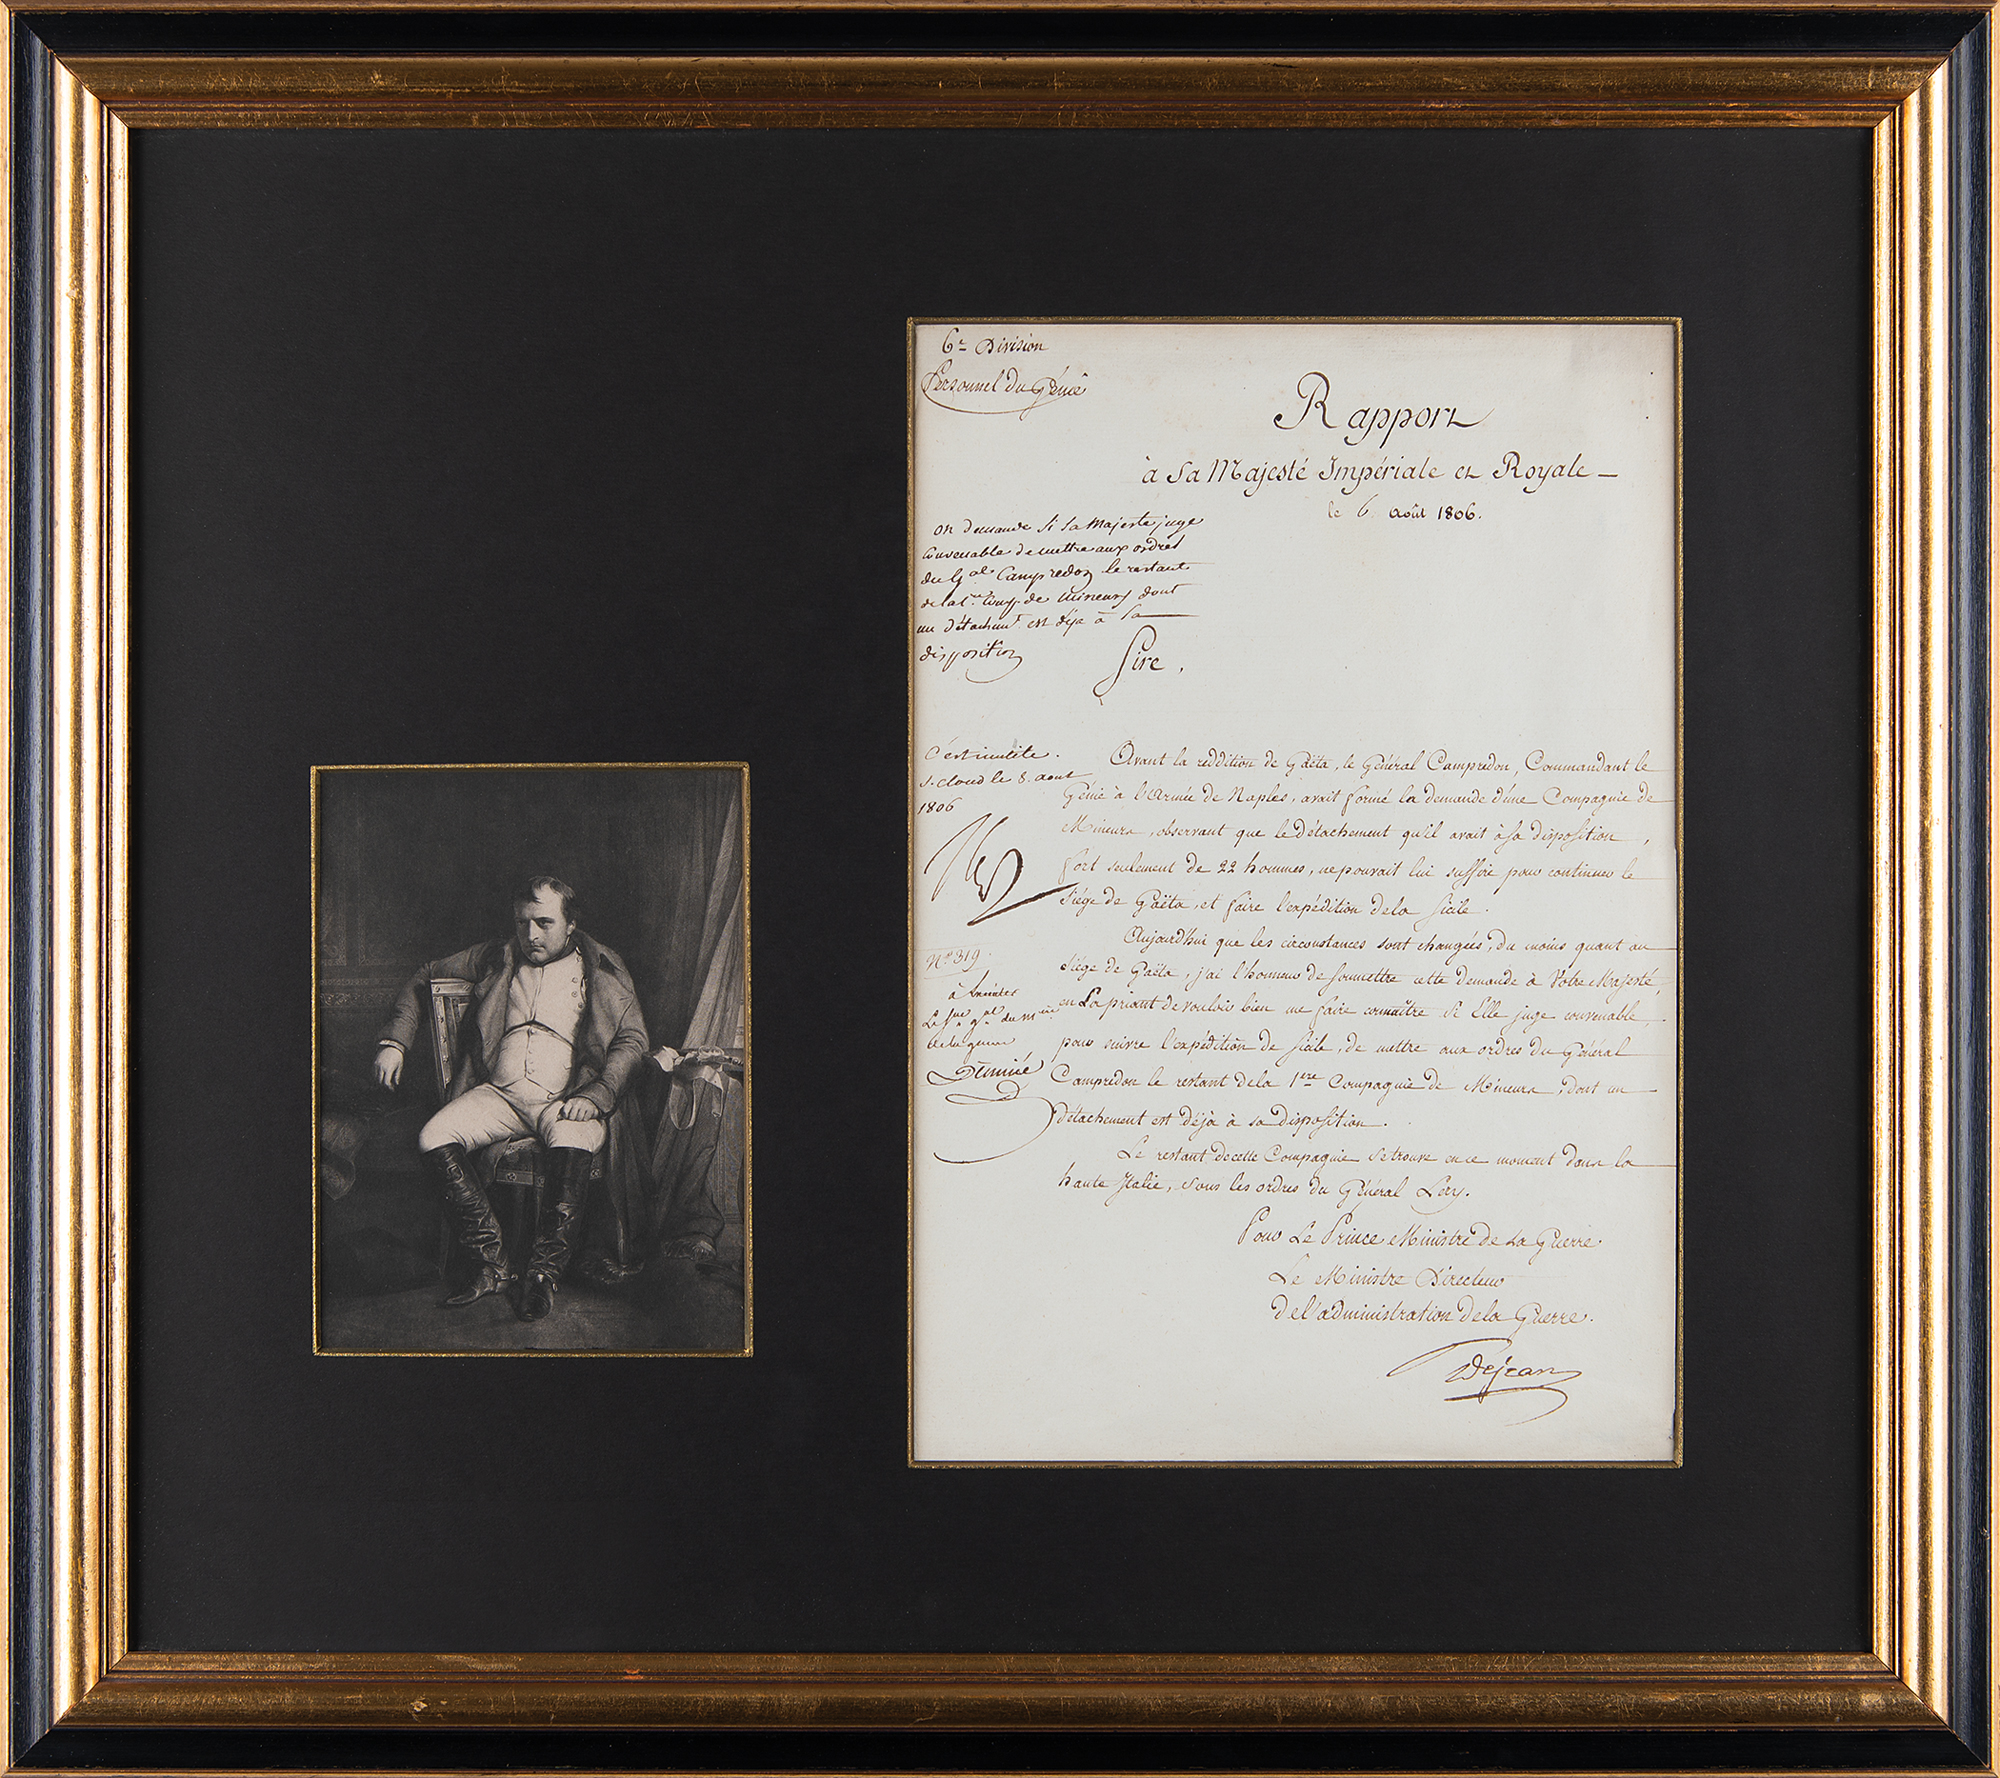 6e Division
Personnel du Génie
Rapport
à Sa Majesté Impériale et Royale —
le 6 août 1806.
on demande si sa Majesté juge
convenable de mettre aux ordres
du Gal Campredon le restant
de la 1re Comp. de mineurs dont
un détachemt est déja à sa
disposition
Sire,
C'est inutile.
S. Cloud le 8. aout
1806
Avant la reddition de Gaëta, le Général Campredon, Commandant le
Génie à l'Armée de Naples, avait formé la demande d'une Compagnie de
Mineurs, observant que le détachement qu'il avait à sa disposition,
fort seulement de 22 hommes, ne pouvait lui suffire pour continuer le
siége de Gaëta, et faire l'expédition de la Sicile.
Aujourd'hui que les circonstances sont changées, du moins quant au
siége de Gaëta, j'ai l'honneur de soumettre cette demande à Votre Majesté,
en La priant de vouloir bien me faire connaître si Elle juge convenable,
pour suivre l'expédition de Sicile, de mettre aux ordres du Général
Campredon le restant de la 1ere Compagnie de Mineurs, dont un
détachement est déjà à sa disposition.
Le restant de cette Compagnie se trouve en ce moment dans la
haute Italie, sous les ordres du Général Lery.
No 319.
de la guerre
Denniée
Pour Le Prince Ministre de La Guerre
Le Ministre Directeur
de l'administration de la Guerre.
Dejean